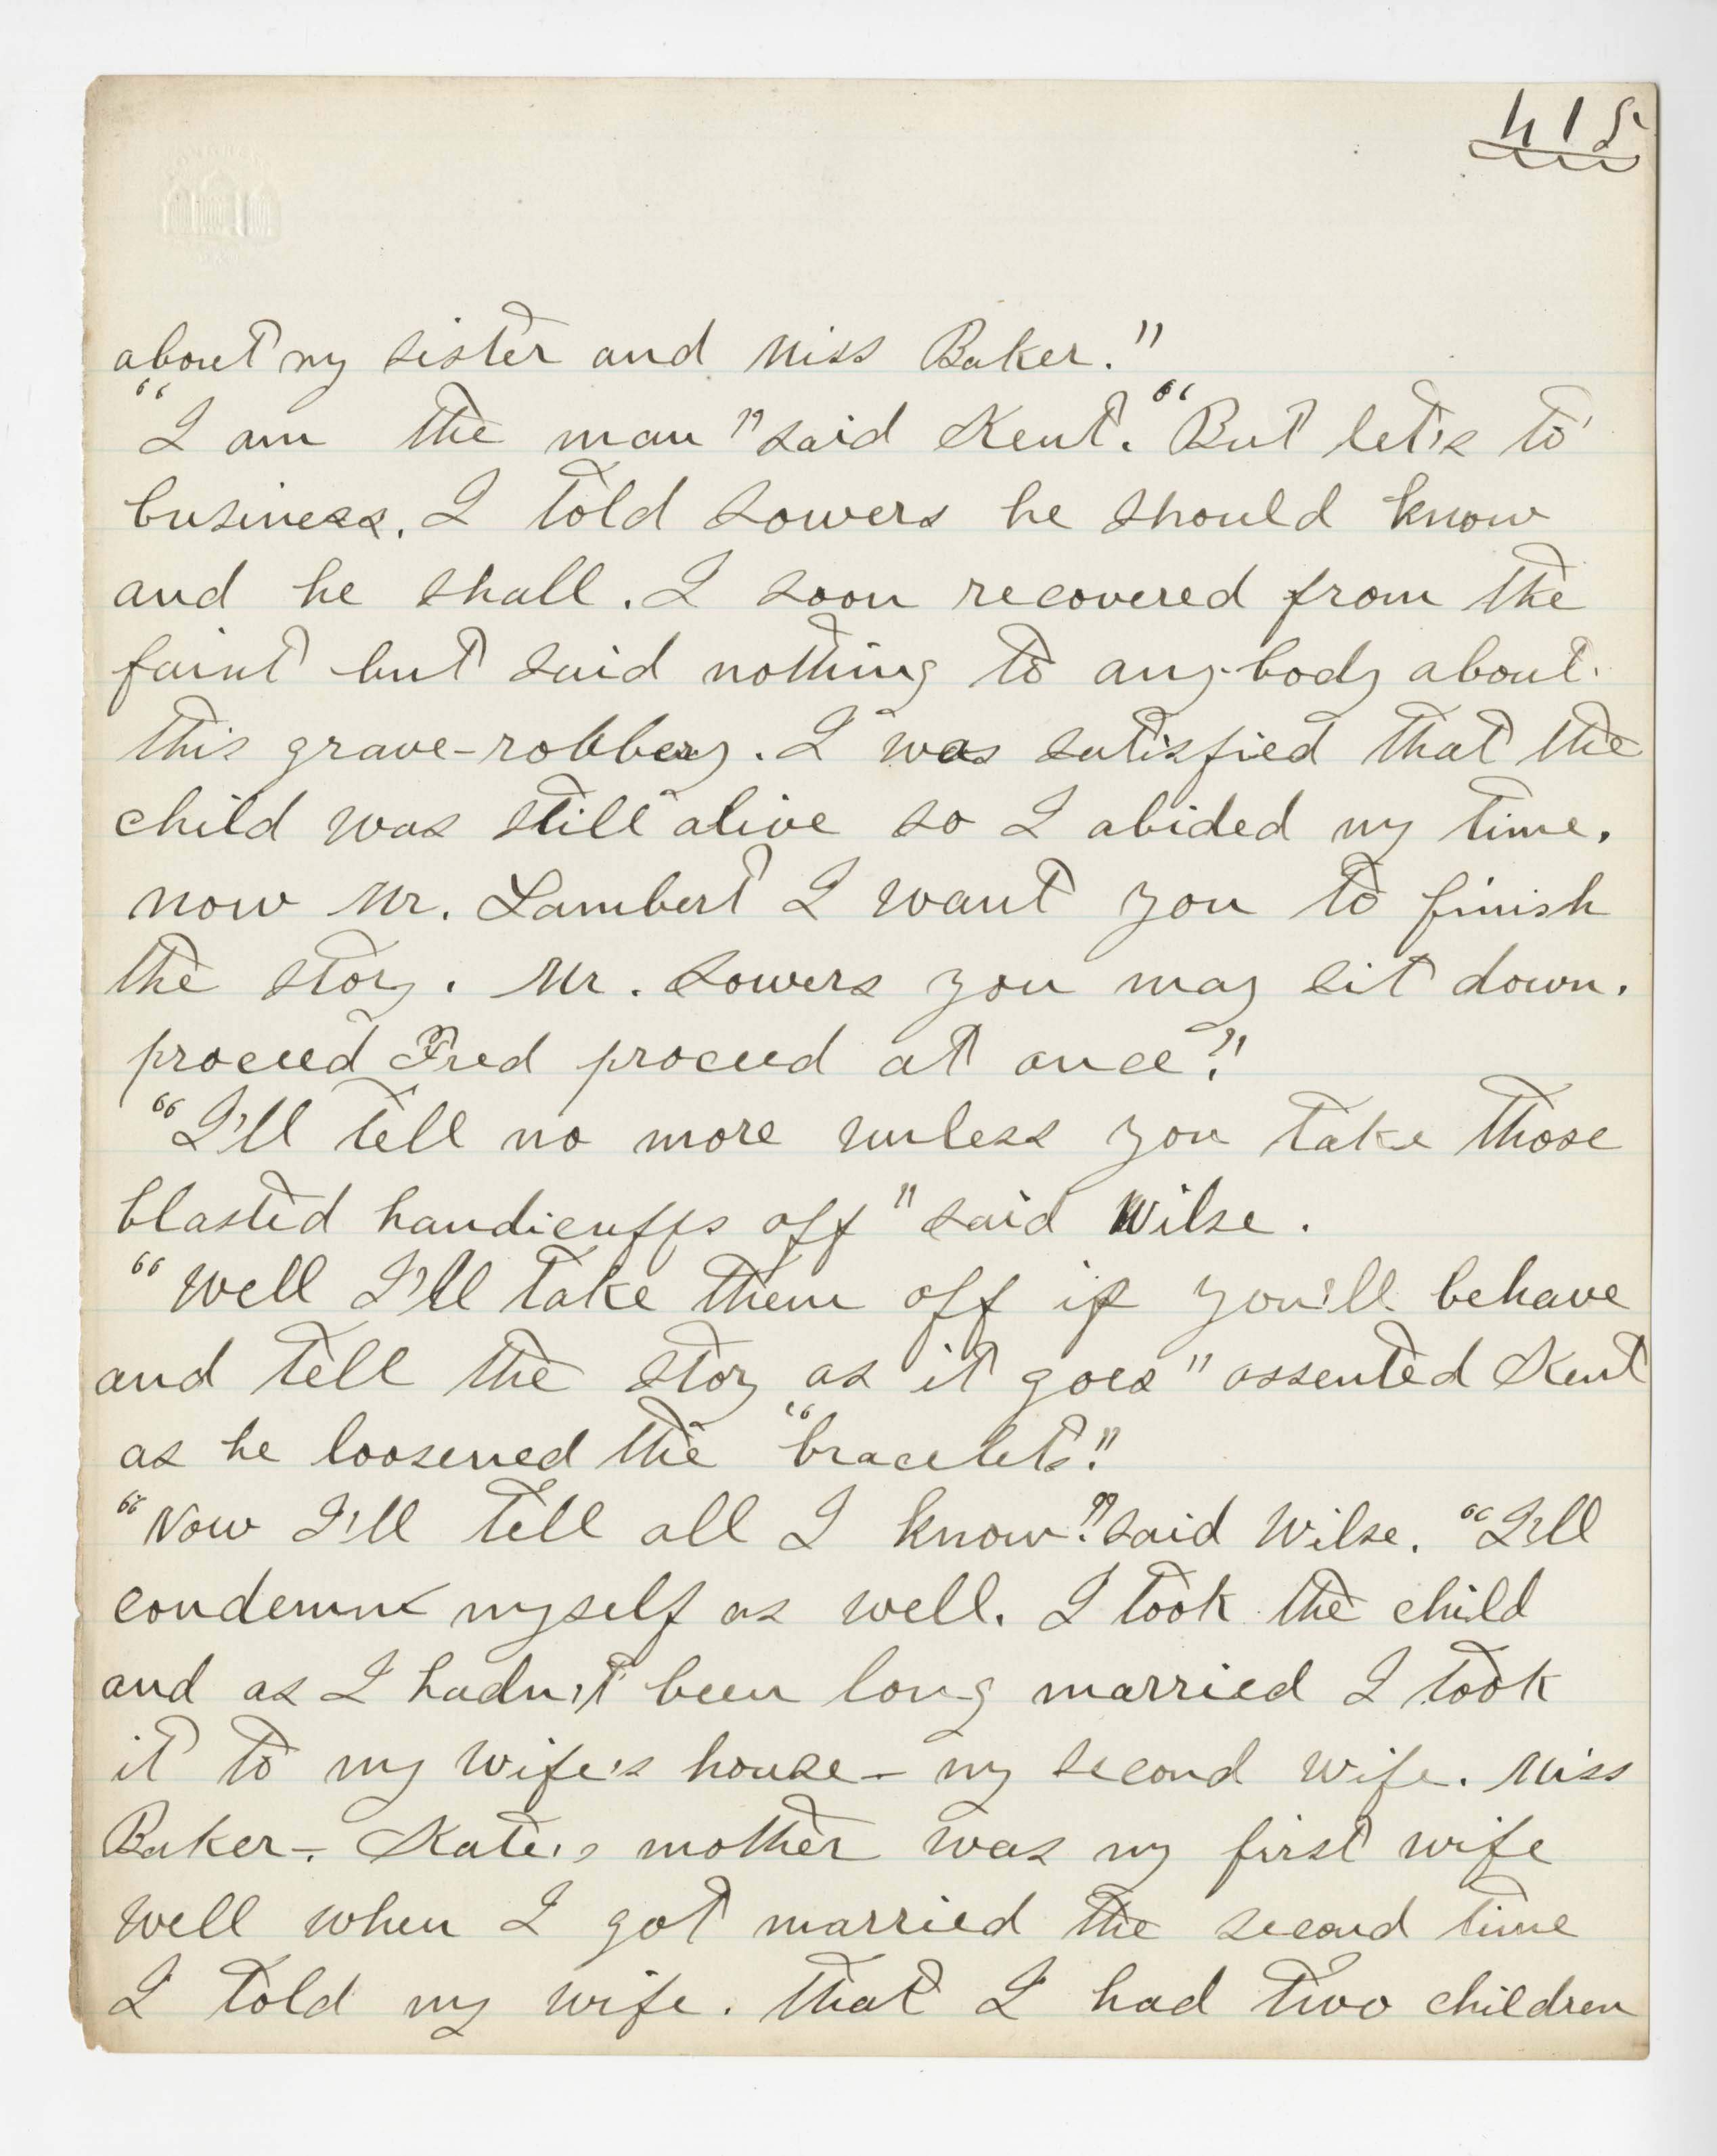 415
CONGRESS
about my sister and Miss Baker."
"I am the man" said Kent. "But let's to
business. I told Sowers he should know
and he shall. I soon recovered from the
faint but said nothing to any-body about
this grave-robbery. I was satisfied that the
child was still alive so I abided my time.
now Mr. Lambert I want you to finish
the story. Mr. Sowers you may sit down.
proceed Fred proceed at once."
"I'll tell no more unless you take those
blasted handicuffs off" said Wilse.
"well I'll take them off if you'll behave
and tell the story as it goes" assented Kent
as he loosened the "bracelets."
"Now I'll tell all I know." said Wilse. "I'll
condemn myself as well. I took the child
and as I hadn't been long married I took
it to my wife's house - my second wife. Miss
Baker -. Kate's mother was my first wife
well when I got married the second time
I told my wife. that I had two children